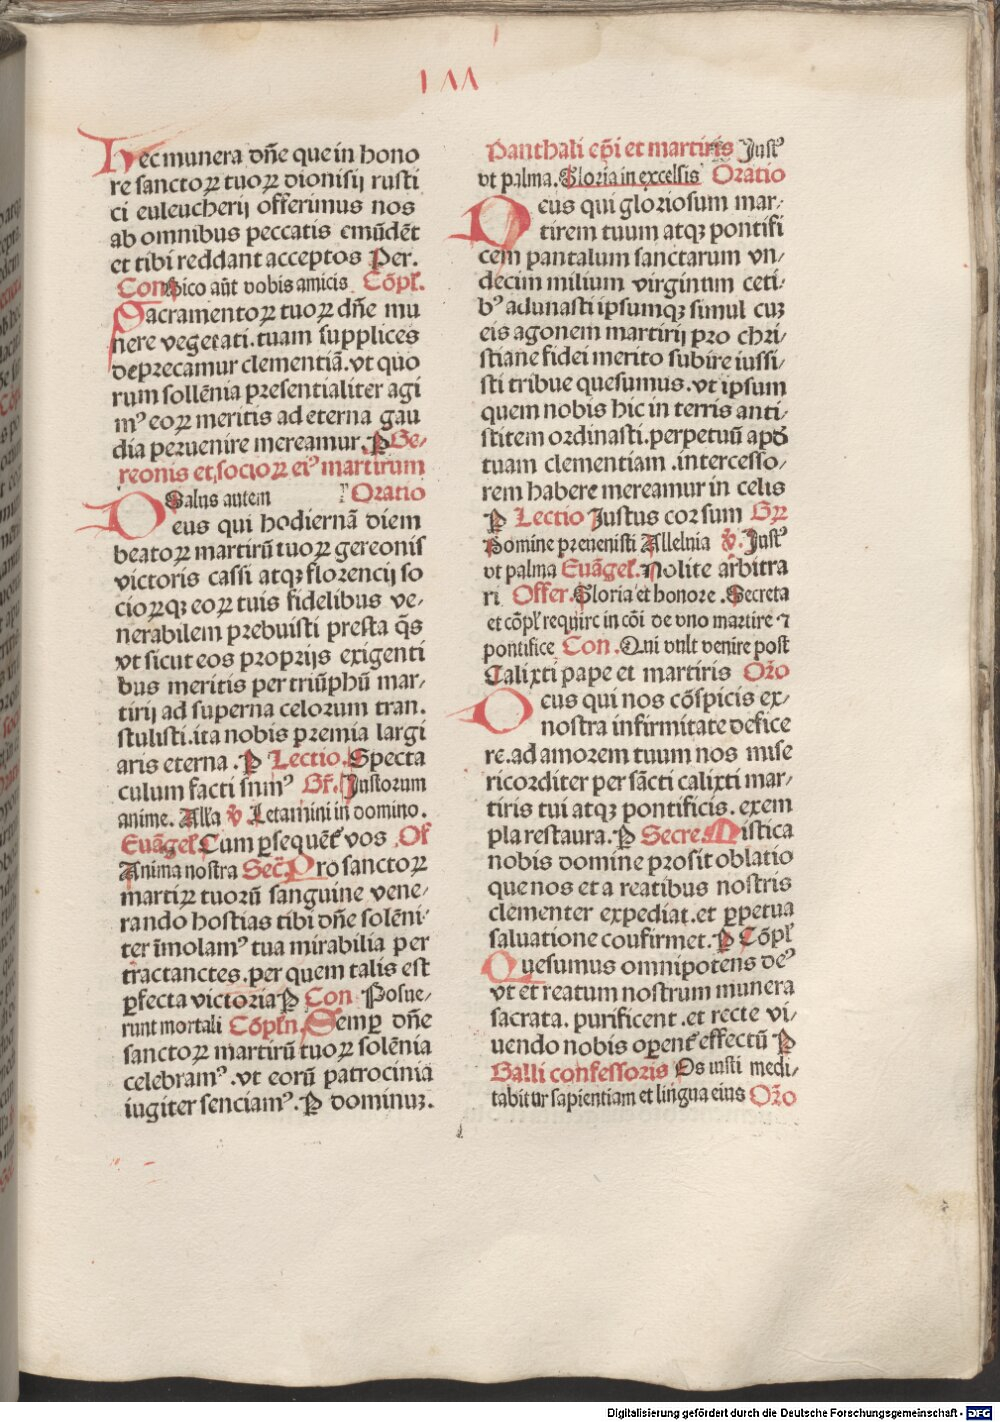 Hec munera dñe que in hono
re sanctoꝝ tuoꝝ dionisij rusti
ci euleucherij offerimus nos
ab omnibus peccatis emūdēt
et tibi reddant acceptos Per.
Con Dico aūt vobis amicis Cōpl.
Sacramentoꝝ tuoꝝ dn̄e mu
nere vegetati. tuam supplices
deprecamur clementiā. vt quo
rum sollēnia presentialiter agi
mꝰ eoꝝ meritis ad eterna gau
dia peruenire mereamur. P Ge⸗
reonis et socioꝝ eiꝰ martirum
Salus autem Oratio
Deus qui hodiernā diem
beatoꝝ martirū tuoꝝ gereonis
victoris cassi atqꝫ florencij so
cioꝝqꝫ eoꝝ tuis fidelibus ve⸗
nerabilem prebuisti presta q̄s
vt sicut eos proprijs exigenti
bus meritis per triūphū mar⸗
tirij ad superna celorum tran.
stulisti. ita nobis premia largi
aris eterna. P Lectio. Specta
culum facti sumꝰ Gr̄. Justorum
anime. Alla ꝟ Letamini in domino.
Euāgel. Cum ꝑsequēt vos Of
Anima nostra Secr̄. Pro sanctoꝝ
martirꝝ tuorū sanguine vene⸗
rando hostias tibi dn̄e solēni⸗
ter īmolamꝰ tua mirabilia per
tractanctes. per quem talis est
ꝑfecta victoria P Con Posue⸗
runt mortali Cōpln. Semꝑ dn̄e
sanctoꝝ martirū tuoꝝ solēnia
celebramꝰ. vt eorū patrocinia
iugiter senciamꝰ. P dominuꝫ.
Panthali ep̄i et martiris Justꝰ
vt palma. Gloria in excelsis Oratio
Deus qui gloriosum mar⸗
tirem tuum atqꝫ pontifi
cem pantalum sanctarum vn⸗
decim milium virginum ceti⸗
bꝰ adunasti ipsumqꝫ simul cuꝫ
eis agonem martirij pro chri⸗
stiane fidei merito subire iussi⸗
sti tribue quesumus. vt ipsum
quem nobis hic in terris anti⸗
stitem ordinasti. perpetuū apd
tuam clementiam. intercesso⸗
rem habere mereamur in celis
P Lectio Justus cor suum Grꝝ
Domine preuenisti Alleluia ꝟ. Justꝰ
vt palma Euāgel. Nolite arbitra
ri Offer. Gloria et honore. Secreta
et cōpl require in cōi de vno martire ⁊
pontifice Con. Qui vult venire post
Calixti pape et martiris Or̄o
Deus qui nos cōspicis ex⸗
nostra infirmitate defice
re. ad amorem tuum nos mise
ricorditer per sācti calixti mar⸗
tiris tui atqꝫ pontificis. exem
pla restaura. P Secre. Mistica
nobis domine prosit oblatio
que nos et a reatibus nostris
clementer expediat. et ꝑpetua
saluatione confirmet. P Cōpl
Quesumus omnipotens deꝰ
vt et reatum nostrum munera
sacrata. purificent. et recte vi⸗
uendo nobis oꝑent effectū P
Galli confessoris Os iusti medi⸗
tabitur sapientiam et lingua eius Or̄o
Digitalisierung gefördert durch die Deutsche Forschungsgemeinschaft - DFG